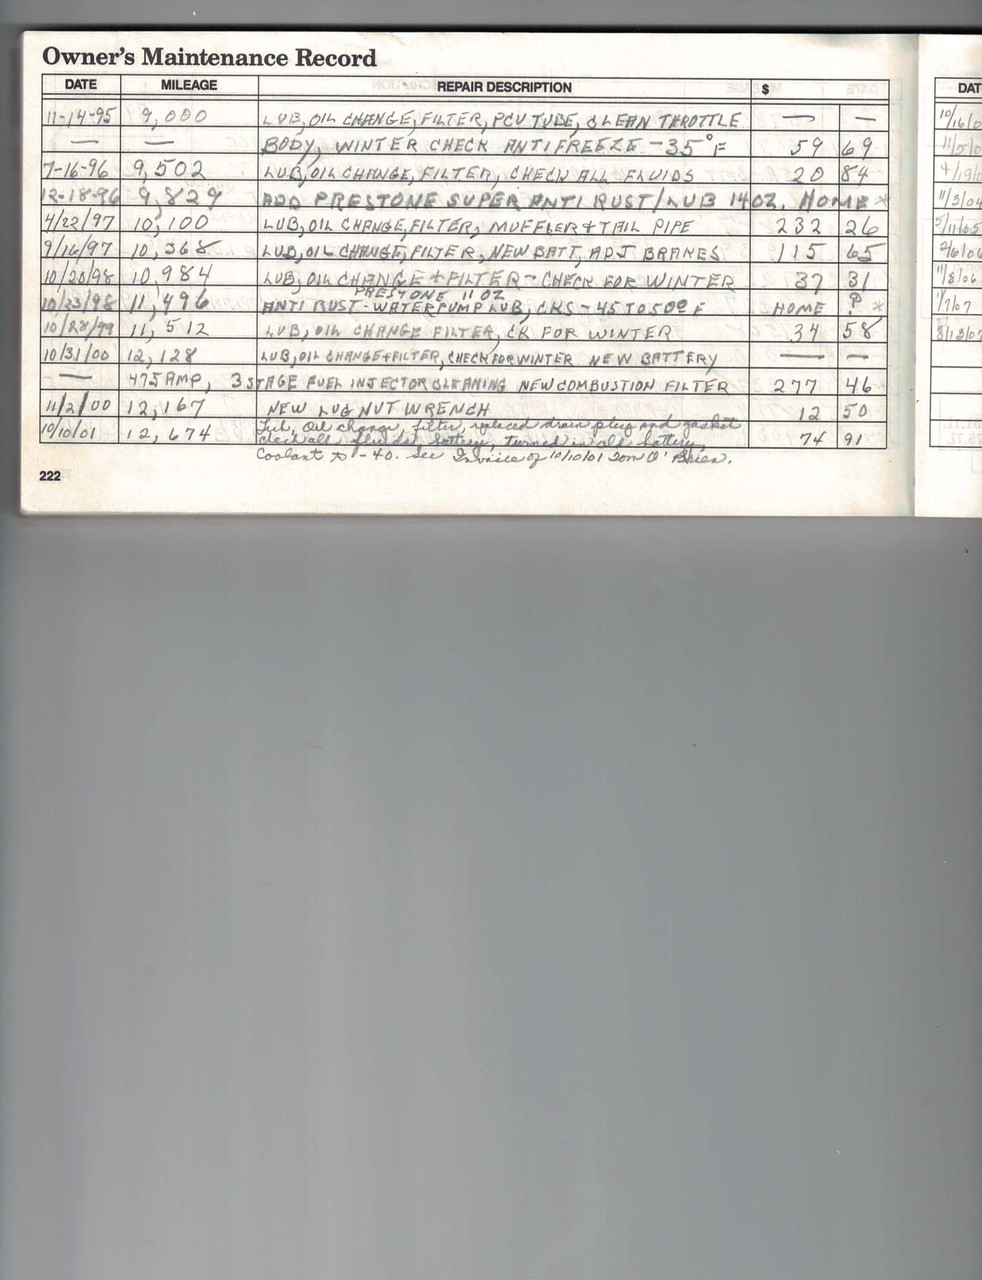 Owner's Maintenance Record
DATE MILEAGE REPAIR DESCRIPTION $
11-14-95 9,000 LUB, OIL CHANGE, FILTER, PCV TUBE, CLEAN THROTTLE — —
— — BODY, WINTER CHECK ANTIFREEZE -35°F 59 69
7-16-96 9,502 LUB, OIL CHANGE, FILTER, CHECK ALL FLUIDS 20 84
12-18-96 9,829 ADD PRESTONE SUPER ANTI RUST/LUB 14OZ, HOME *
4/22/97 10,100 LUB, OIL CHANGE, FILTER, MUFFLER + TAIL PIPE 232 26
9/16/97 10,368 LUB, OIL CHANGE, FILTER, NEW BATT, ADJ BRAKES 115 65
10/20/98 10,984 LUB, OIL CHANGE + FILTER - CHECK FOR WINTER 37 31
PRESTONE 11 OZ
10/23/98 11,496 ANTI RUST - WATERPUMP LUB, CKS - 45 TO 50° F HOME ? *
10/28/99 11,512 LUB, OIL CHANGE FILTER, CK FOR WINTER 34 58
10/31/00 12,128 LUB, OIL CHANGE + FILTER, CHECK FOR WINTER NEW BATTERY — —
— 475 AMP, 3 STAGE FUEL INJECTOR CLEANING NEW COMBUSTION FILTER 277 46
11/2/00 12,167 NEW LUG NUT WRENCH 12 50
10/10/01 12,674 Lub, Oil change, filter, replaced drain plug and gasket
check all fluids, battery, turned in old battery, 74 91
Coolant to -40. See Invoice of 10/10/01 Tom O'Brien.
222
DAT
10/16/0
11/5/0
4/19/0
11/3/04
5/11/05
2/6/06
11/8/06
1/7/07
8/13/07